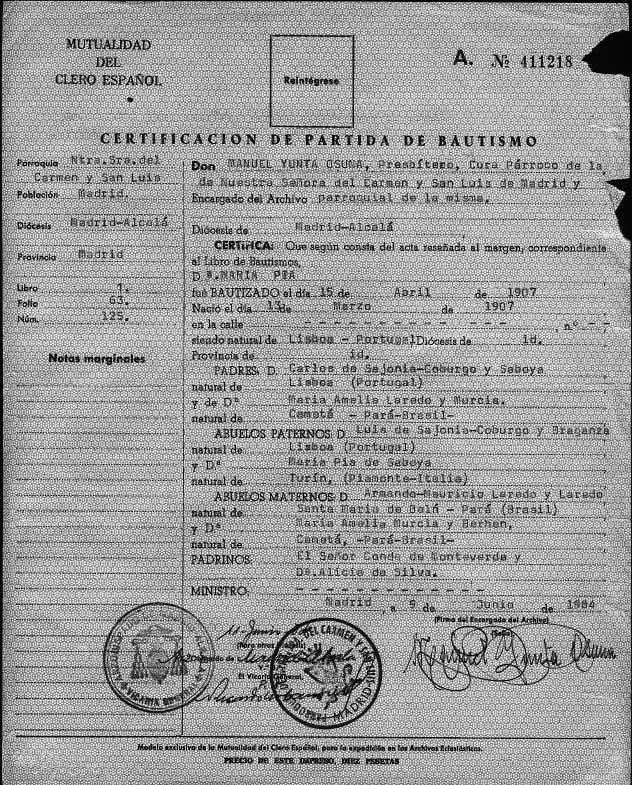 MUTUALIDAD
DEL
CLERO ESPAÑOL
Reintégrese
A. Nº 411218
CERTIFICACION DE PARTIDA DE BAUTISMO
Parroquia Ntra.Sra.del
Carmen y San Luis
Población Madrid.
Diócesis Madrid-Alcalá
Provincia Madrid
Libro 1.
Folio 63.
Núm. 125.
Notas marginales
Don MANUEL YUNTA OSUNA, Presbítero, Cura Párroco de la
de Nuestra Señora del Carmen y San Luis de Madrid y
Encargado del Archivo parroquial de la misma.
Diócesis de Madrid-Alcalá
CERTIFICA: Que según consta del acta reseñada al margen, correspondiente
al Libro de Bautismos,
D.ª.MARIA PIA
fué BAUTIZADO el día 15 de Abril de 1907
Nació el día 13 de Marzo de 1907
en la calle - - - - - - - - - - - - - , n.º - -
siendo natural de Lisboa - Portugal Diócesis de id.
Provincia de id.
PADRES: D. Carlos de Sajonia-Coburgo y Saboya
natural de Lisboa (Portugal)
y de D.ª Maria Amelia Laredo y Murcia.
natural de Cametá - Pará-Brasil-
ABUELOS PATERNOS: D. Luis de Sajonia-Coburgo y Braganza
natural de Lisboa (Portugal)
y D.ª Maria Pia de Saboya
natural de Turín, (Piamonte-Italia)
ABUELOS MATERNOS: D. Armando-Mauricio Laredo y Laredo
natural de Santa Maria de Belá - Pará (Brasil)
y D.ª Maria Amelia Murcia y Berhen,
natural de Cametá, -Pará-Brasil-
PADRINOS: El Señor Conde de Monteverde y
Dª.Alicia de Silva.
MINISTRO: - - - - - - - - - - - -
Madrid, a 9 de Junio de 1984
(Firma del Encargado del Archivo)
(Sello)
(Para otras Diócesis)
El Vicario General,
VICARIA GENERAL
DEL CARMEN Y SAN LUIS
MADRID
Manuel Yunta Osuna
Modelo exclusivo de la Mutualidad del Clero Español, para la expedición en los Archivos Eclesiásticos.
PRECIO DE ESTE IMPRESO, DIEZ PESETAS